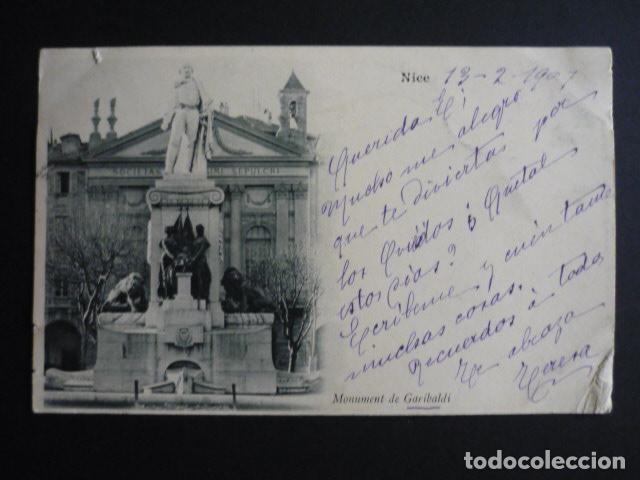 Nice
13-2-1901
Querida E;
Mucho me alegro
que te diviertas por
los
¿ Qué tal
estos días?
Escribeme y cuéntame
muchas cosas.
Recuerdos á todos
Te abraza
Teresa
SOCIETAS SEPULCRI
Monument de Garibaldi
todocoleccion.net